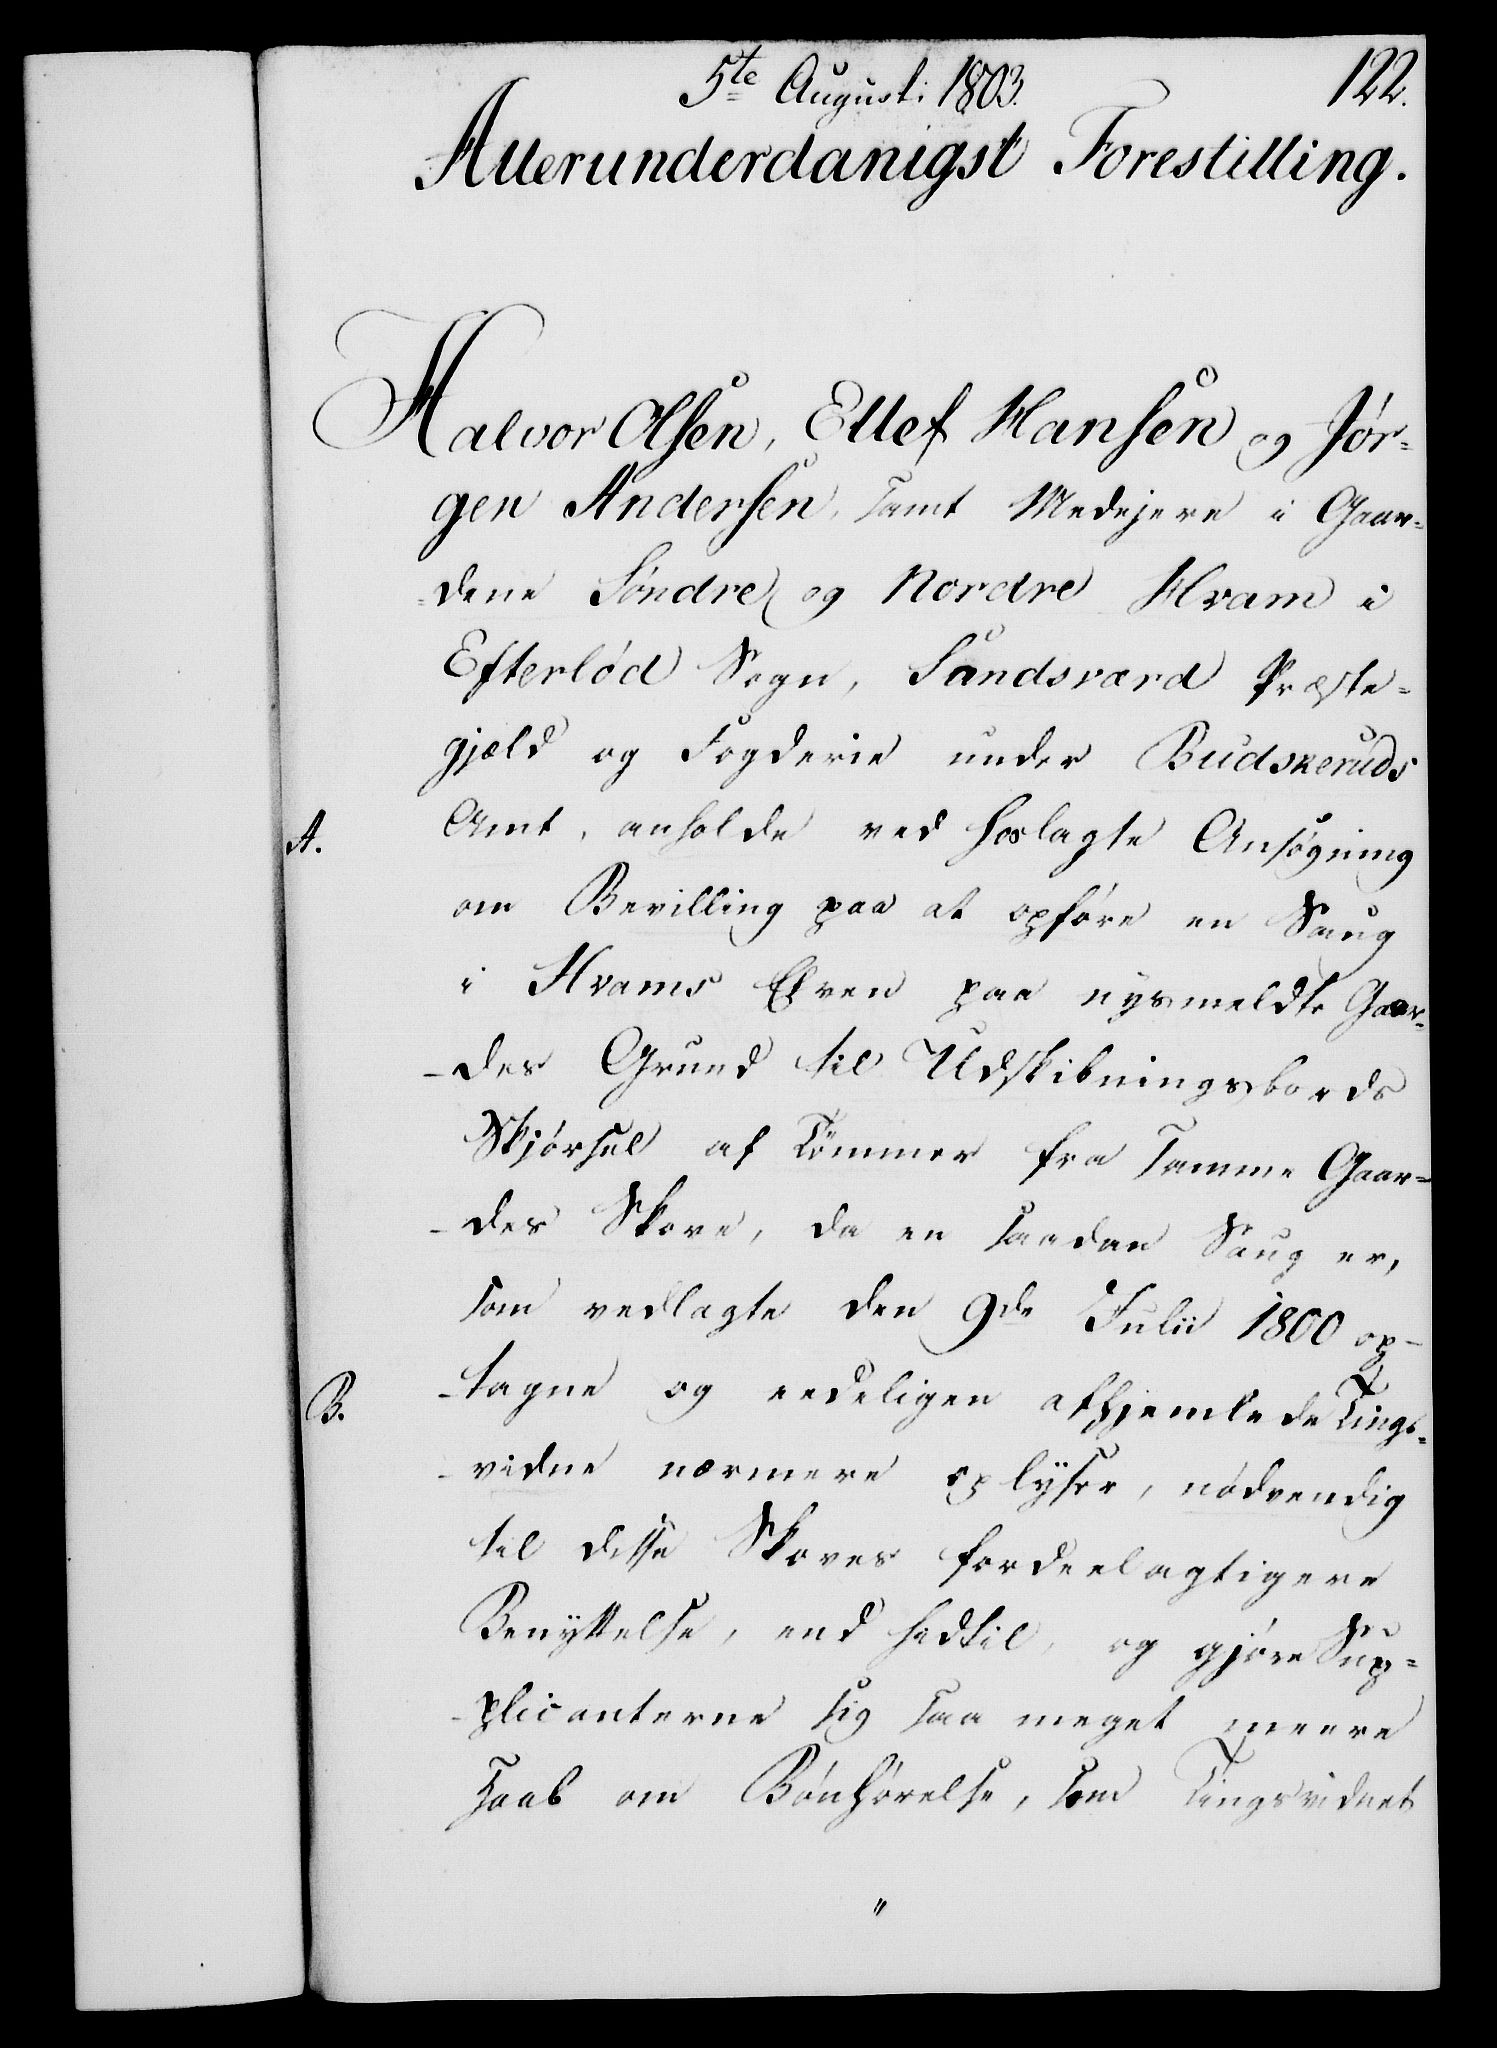 5te August: 1803.
122.
Allerunderdanigst Forestilling.
Halvor Olsen, Ellef Hansen og Jør-
gen Andersen, samt Medejere i Gaar-
-dene Søndre og Nordre Hvam i
Efterlød Sogn, Sandsværd Præste-
gjæld og Fogderie under Budskeruds
A.
Amt, anholde ved hoslagte Ansøgning
om Bevilling paa at opføre en Saug
i Hvams Elven paa nysmeldte Gaar-
-des Grund til Udskibningsbords
Skjørsel af Tømmer fra samme Gaar-
-des Skove, da en saadan Saug er,
som vedlagte den 9de Julii 1800 op-
B.
-tagne og eedeligen afhjemlede Tings-
-vidne nærmere oplyser, nødvendig
til disse Skoves fordeelagtigere
Benyttelse, end hidtil, og gjøre Sup-
-plicanterne sig saa meget meere
Haab om Bønhørelse, som Tingsvidnet
"